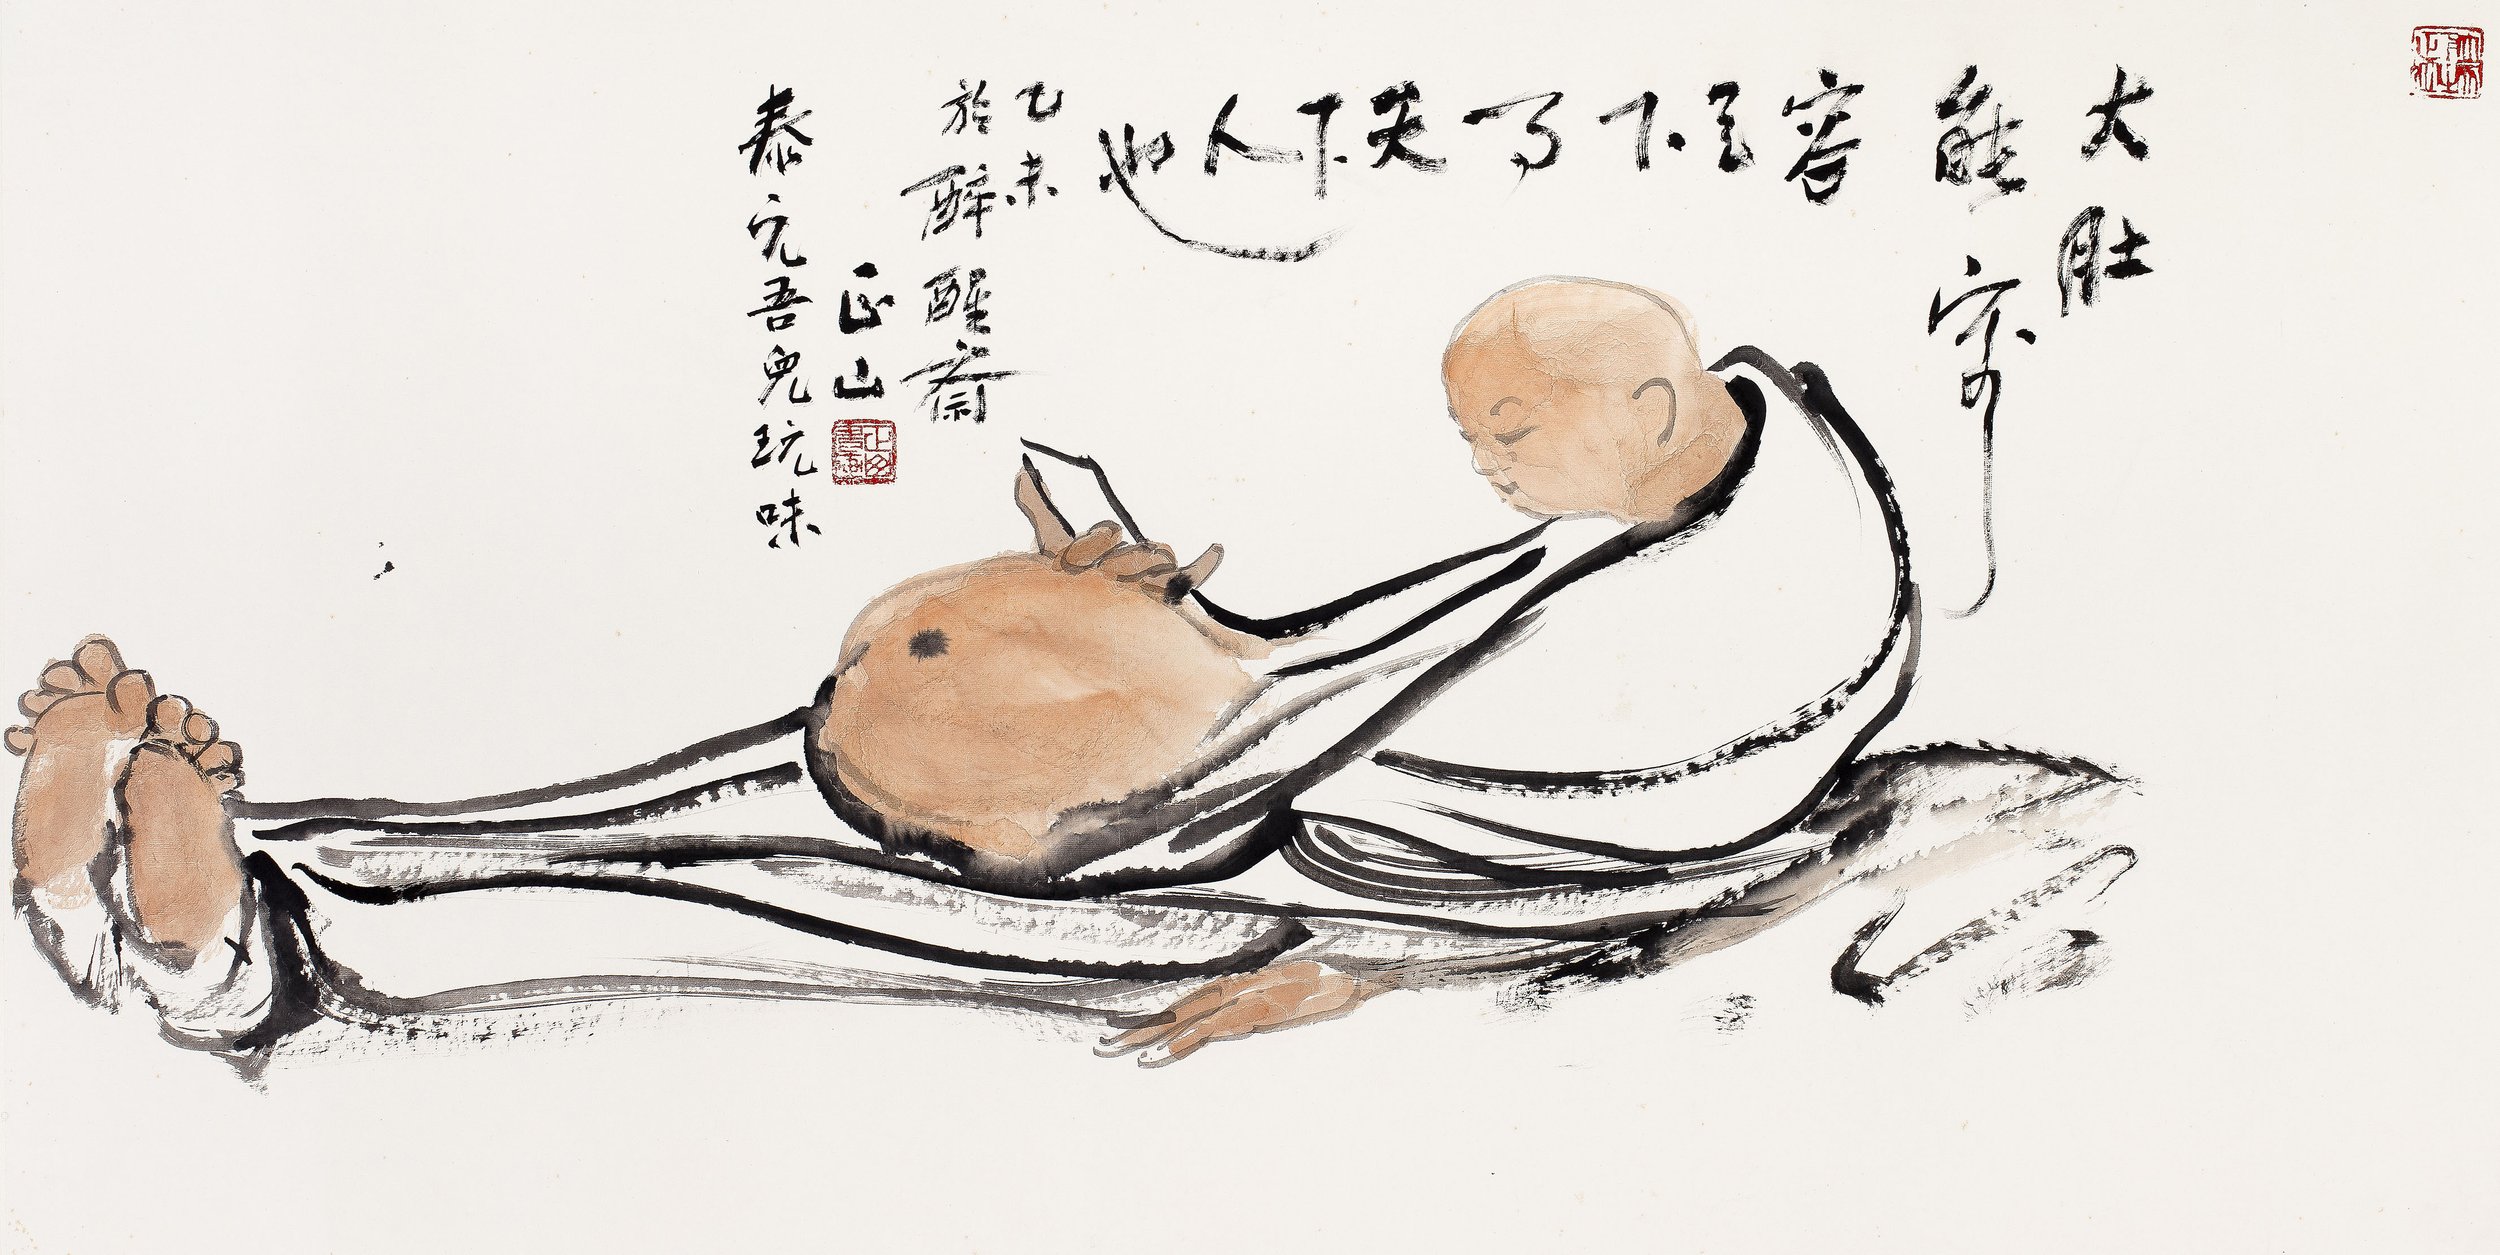 大肚
能
容
天
下
可
笑
下
人
也
乙未
於醉醒齋
正山
泰元吾兒玩味